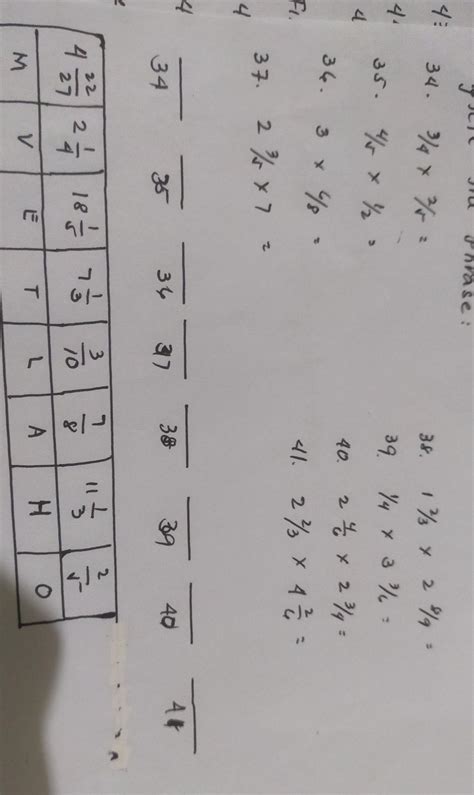 the phrase:
34. 3/4 x 2/5 =
35. 4/5 x 1/2 =
36. 3 x 6/8 =
37. 2 3/5 x 7 =
38. 1 2/3 x 2 8/9 =
39. 1/4 x 3 3/6 =
40. 2 4/6 x 2 3/4 =
41. 2 2/3 x 4 2/6 =
34 35 36 37 38 39 40 41
4 22/27 2 1/4 18 1/5 7 1/3 3/10 7/8 11 1/3 2/5
M V E T L A H O